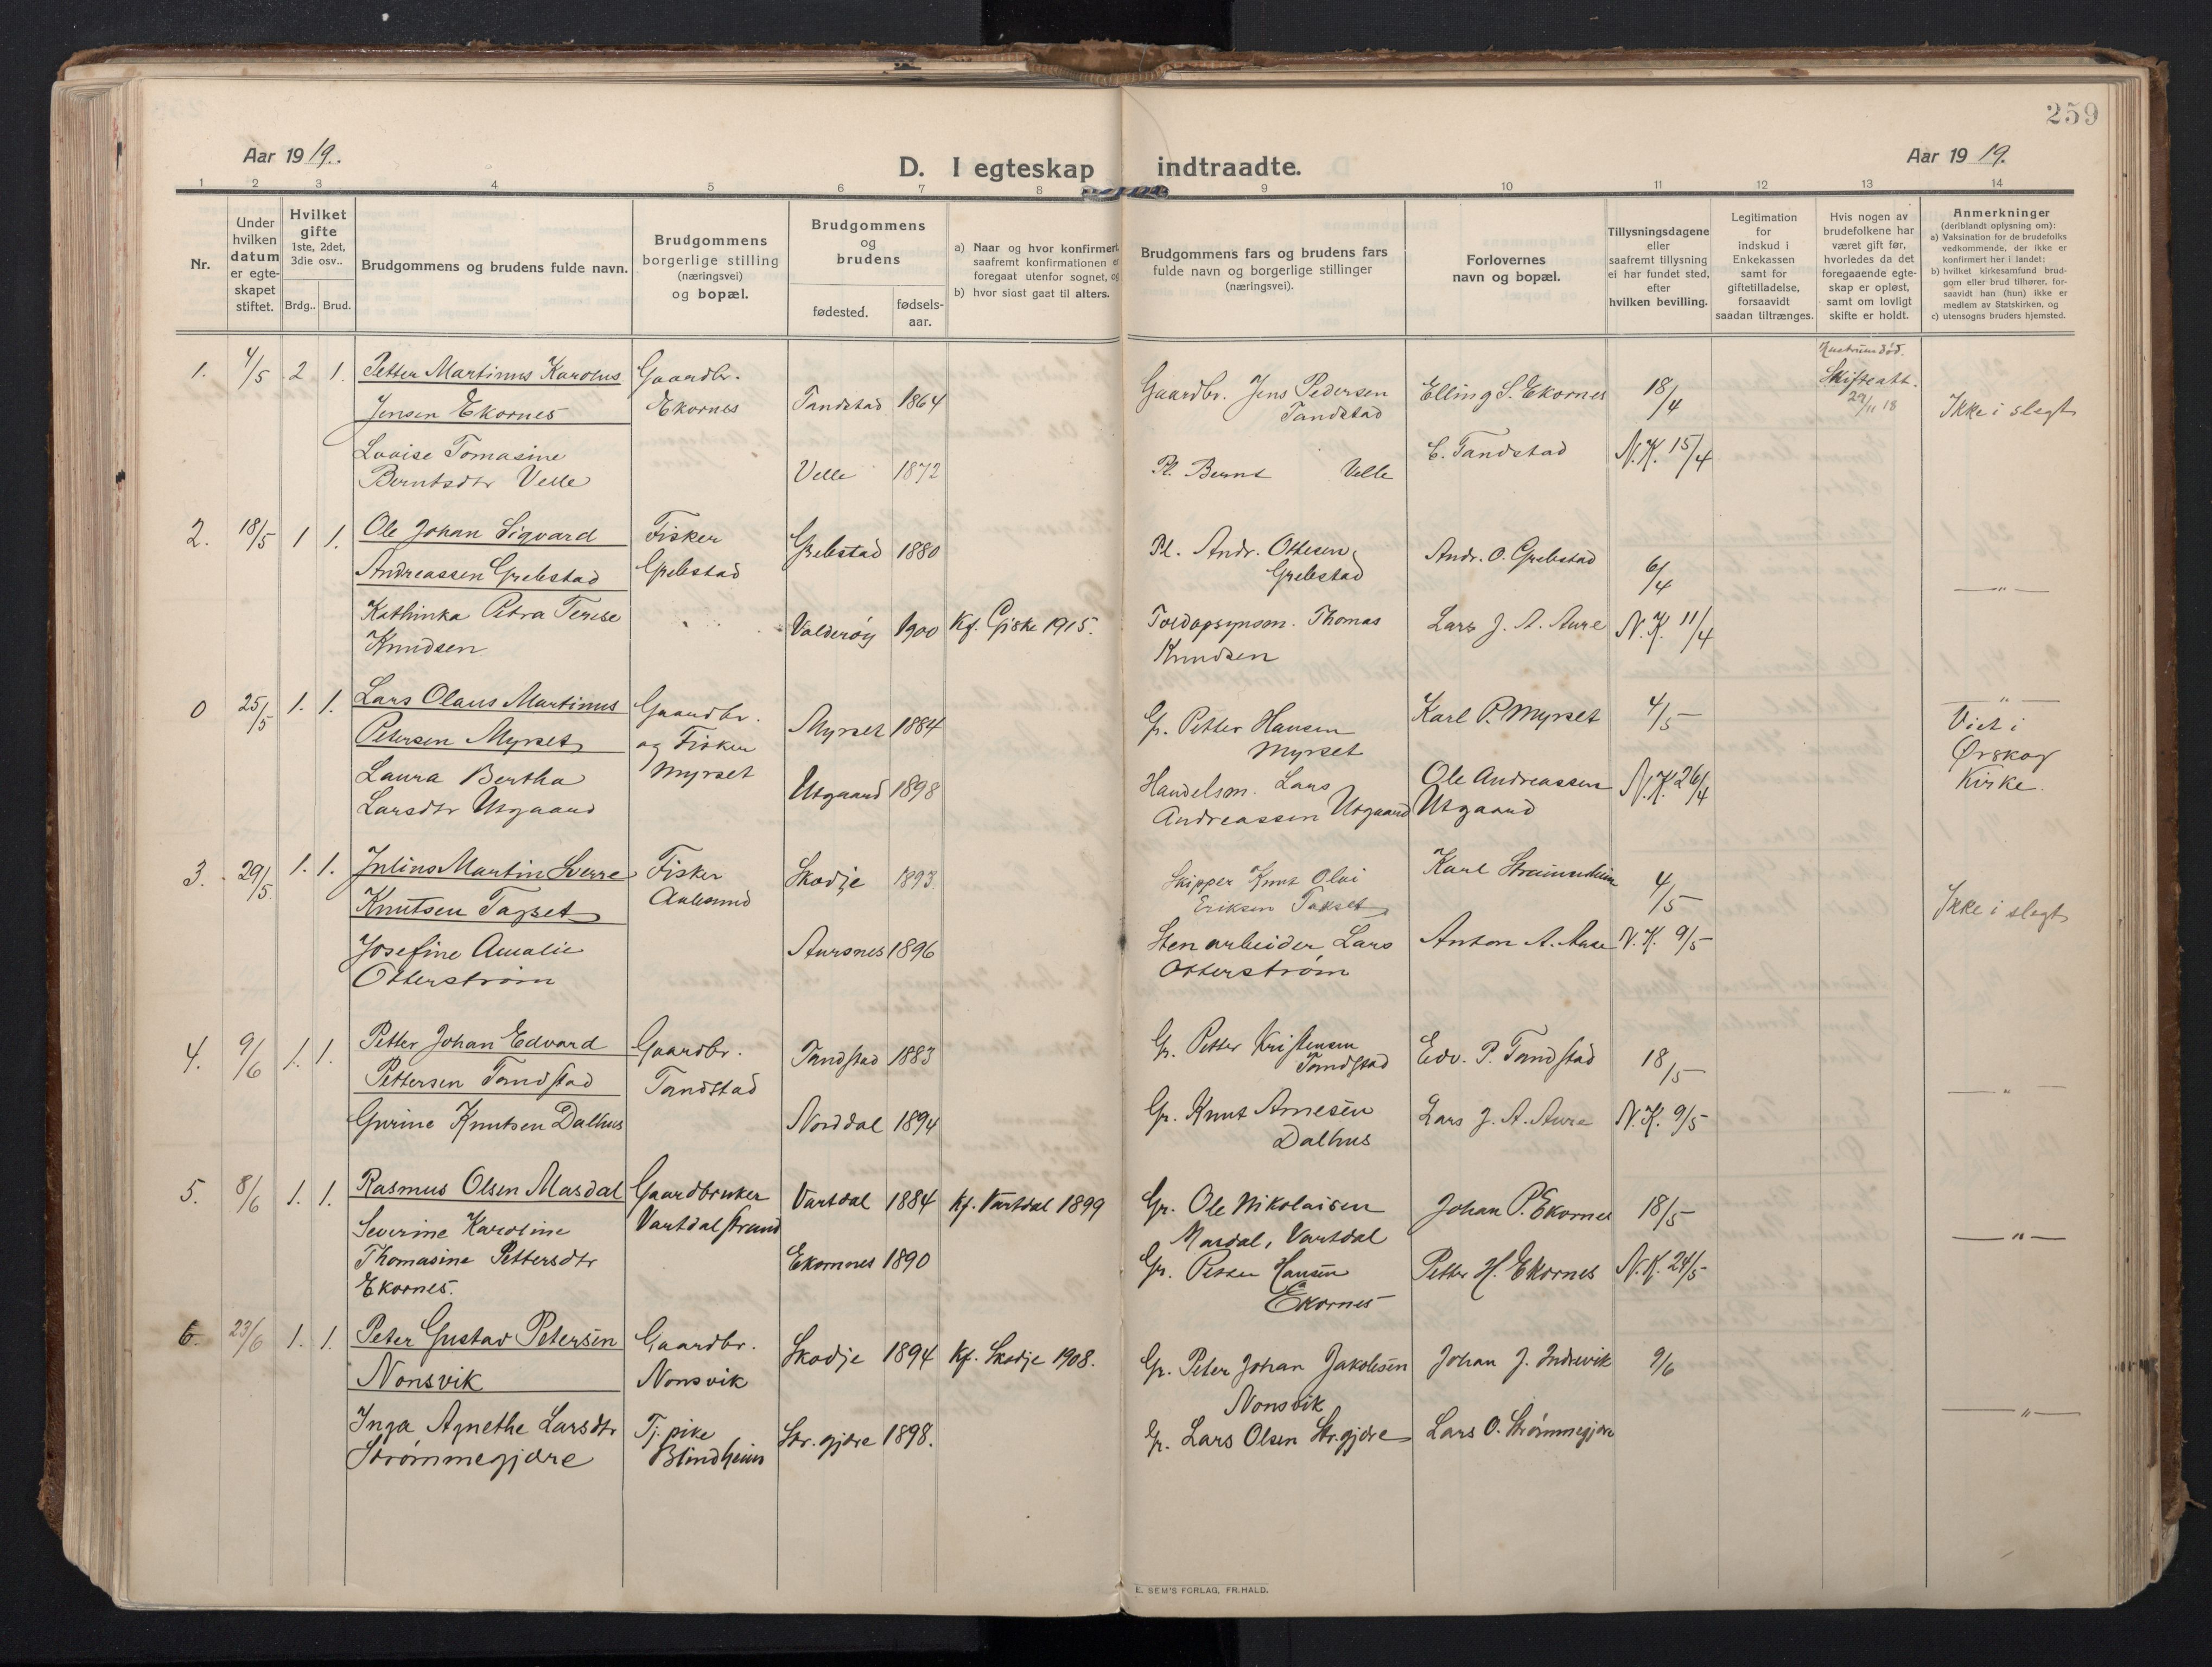 259
Aar 1919.
D. I egteskap indtraadte.
Aar 1919.
1 2 3 4 5 6 7 8 9 10 11 12 13 14
Nr.
Under
hvilken
datum
er egte-
skapet
stiftet.
Hvilket
gifte
1ste, 2det,
3die osv..
Brdg.. Brud.
Brudgommens og brudens fulde navn.
Brudgommens
borgerlige stilling
(næringsvei)
og bopæl.
Brudgommens
og
brudens
fødested.
fødsels-
aar.
a) Naar og hvor konfirmert
saafremt konfirmationen er
foregaat utenfor sognet, og
b) hvor sidst gaat til alters.
Brudgommens fars og brudens fars
fulde navn og borgerlige stillinger
(næringsvei).
Forlovernes
navn og bopæl.
Tillysningsdagene
eller
saafremt tillysning
ei har fundet sted,
efter
hvilken bevilling.
Legitimation
for
indskud i
Enkekassen
samt for
giftetilladelse,
forsaavidt
saadan tiltrænges.
Hvis nogen av
brudefolkene har
været gift før,
hvorledes da det
foregaaende egte-
skap er opløst,
samt om lovligt
skifte er holdt.
Anmerkninger
(deriblandt oplysning om):
a) Vaksination for de brudefolks
vedkommende, der ikke er
konfirmert her i landet;
b) hvilket kirkesamfund brud-
gom eller brud tilhører, for-
saavidt han (hun) ikke er
medlem av Statskirken, og
c) utensogns bruders hjemsted.
1. 4/5 2 1. Petter Martinus Karolus
Jensen Ekornes
Gaardbr.
Ekornes
Tandstad 1864
Gaardbr. Jens Pedersen
Tandstad
Elling S. Ekornes
18/4
Hustruen død.
Skifteatt.
29/11 18
Ikke i slegt
Lovise Tomasine
Berntsdtr Velle
Velle 1872
Pl. Bernt Velle
E. Tandstad
N.K. 15/4
2. 18/5 1 1. Ole Johan Sigvard
Andreassen Grebstad
Fisker
Grebstad
Grebstad 1880
Pl. Andr. Ottesen
Grebstad
Andr. O. Grebstad
6/4
— " —
Kathinka Petra Terese
Knudsen
Valderøy 1900 Kf. Giske 1915.
Toldopsynsm. Thomas
Knudsen
Lars J. A. Aure
N.K. 11/4
0 25/5 1. 1. Lars Olaus Martinus
Petersen Myrset
Gaardbr.
og Fisker
Myrset
Myrset 1884
G. Petter Hansen
Myrset
Karl P. Myrset
4/5
— " —
Viet i
Ørskog
Kirke.
Laura Bertha
Larsdtr Utgaard
Utgaard 1898
Handelsm. Lars
Andreassen Utgaard
Ole Andreassen
Utgaard
N.K. 26/4
3. 29/5. 1. 1. Julius Martin Sverre
Knutsen Tagset
Fisker
Aalesund
Skodje 1893.
Skipper Knut Olai
Eriksen Takset
Karl
4/5
Ikke i slegt
Josefine Amalie
Otterstrøm
Aursnes 1896
Stenarbeider Lars
Otterstrøm
Anton A. Aase
N.K. 9/5
4. 9/6 1. 1. Petter Johan Edvard
Pettersen Tandstad
Gaardbr.
Tandstad
Tandstad 1883
G. Petter Kristensen
Tandstad
Edv. P. Tandstad
18/5
— " —
Gurine Knutsen Dalhus
Norddal 1894
Gr. Knut Arnesen
Dalhus
Lars J. A. Aure
N.K. 9/5
5. 8/6 1. 1. Rasmus Olsen Masdal
Gaardbruker
Vartdalstrand
Vartdal 1884 Kf. Vartdal 1899
Gr. Ole Nikolaisen
Masdal, Vartdal
Johan P. Ekornes
18/5
— " —
Severine Karoline
Thomasine Pettersdtr
Ekornes.
Ekornes 1890
Gr. Petter Hansen
Ekornes
Petter H. Ekornes
N.K. 24/5
6. 23/6 1. 1. Peter Gustav Petersen
Nonsvik
Gaardbr.
Nonsvik
Skodje 1894 Kf. Skodje 1908.
Gr. Peter Johan Jakobsen
Nonsvik
Johan J. Indrevik
9/6
— " —
Inga Agnethe Larsdtr
Strømmegjære
Tj. pike
Blindheim
Str. gjære 1898.
Gr. Lars Olsen Str.gjære
Lars O. Strømmegjære
E. SEM'S FORLAG, FR.HALD.